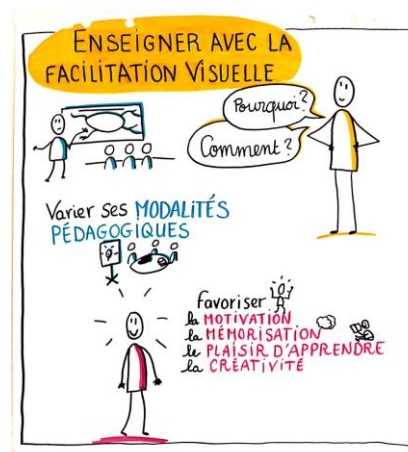 ENSEIGNER AVEC LA
FACILITATION VISUELLE
Pourquoi?
Comment?
Varier ses MODALITÉS
PÉDAGOGIQUES
Favoriser
la MOTIVATION
la MÉMORISATION
le PLAISIR D'APPRENDRE
la CRÉATIVITÉ